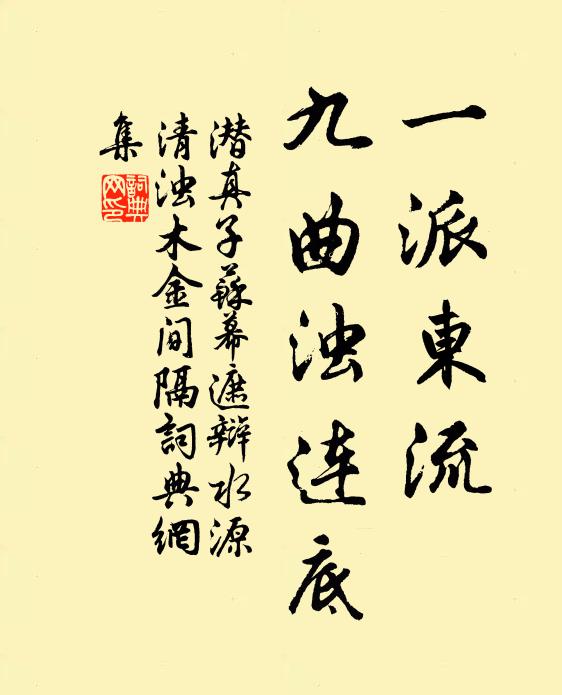 一派東流
九曲浊连底
潜真子蘇幕遮辩水源
清浊木金间隔詞典網
集
詞典網印